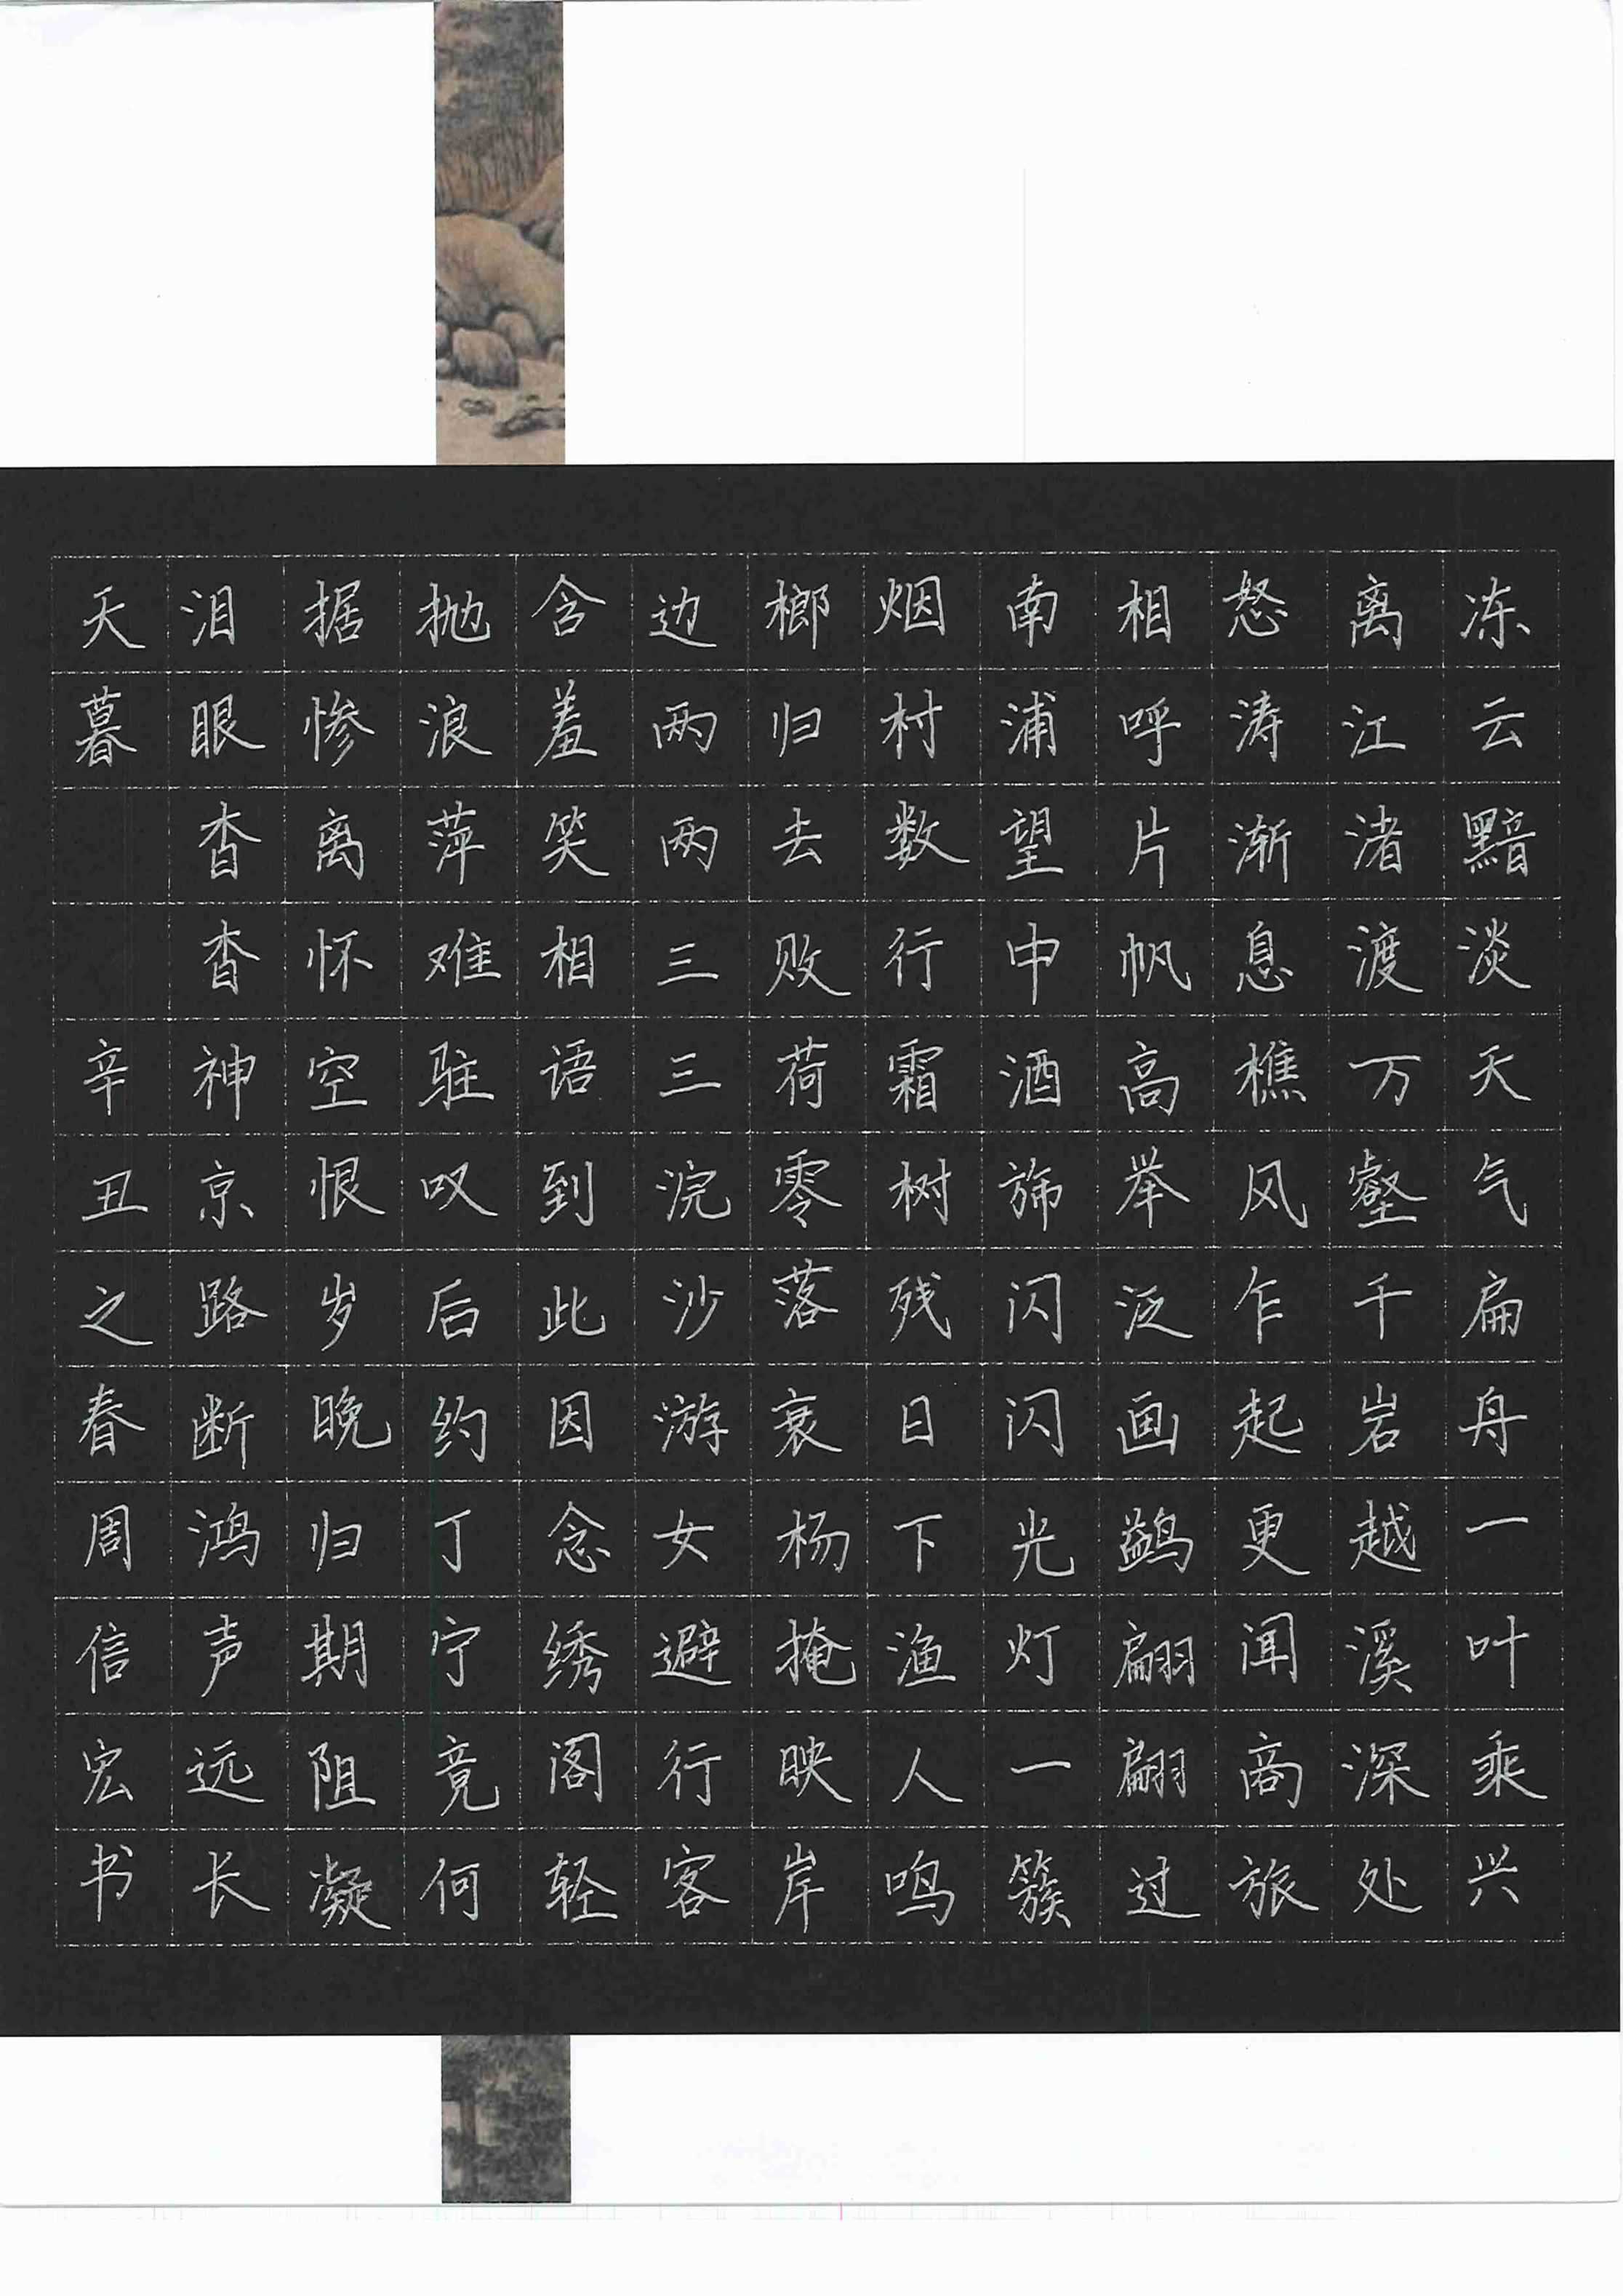 冻云黯淡天气扁舟一叶乘兴
离江渚渡万壑千岩越溪深处
怒涛渐息樵风乍起更闻商旅
相呼片帆高举泛画鹢翩翩过
南浦望中酒旆闪闪光灯一簇
烟村数行霜树残日下渔人鸣
榔归去败荷零落衰杨掩映岸
边两两三三浣沙游女避行客
含羞笑相语到此因念绣阁轻
抛浪萍难驻叹后约丁宁竟何
据惨离怀空恨岁晚归期阻凝
泪眼杳杳神京路断鸿声远长
天暮 辛丑之春周信宏书